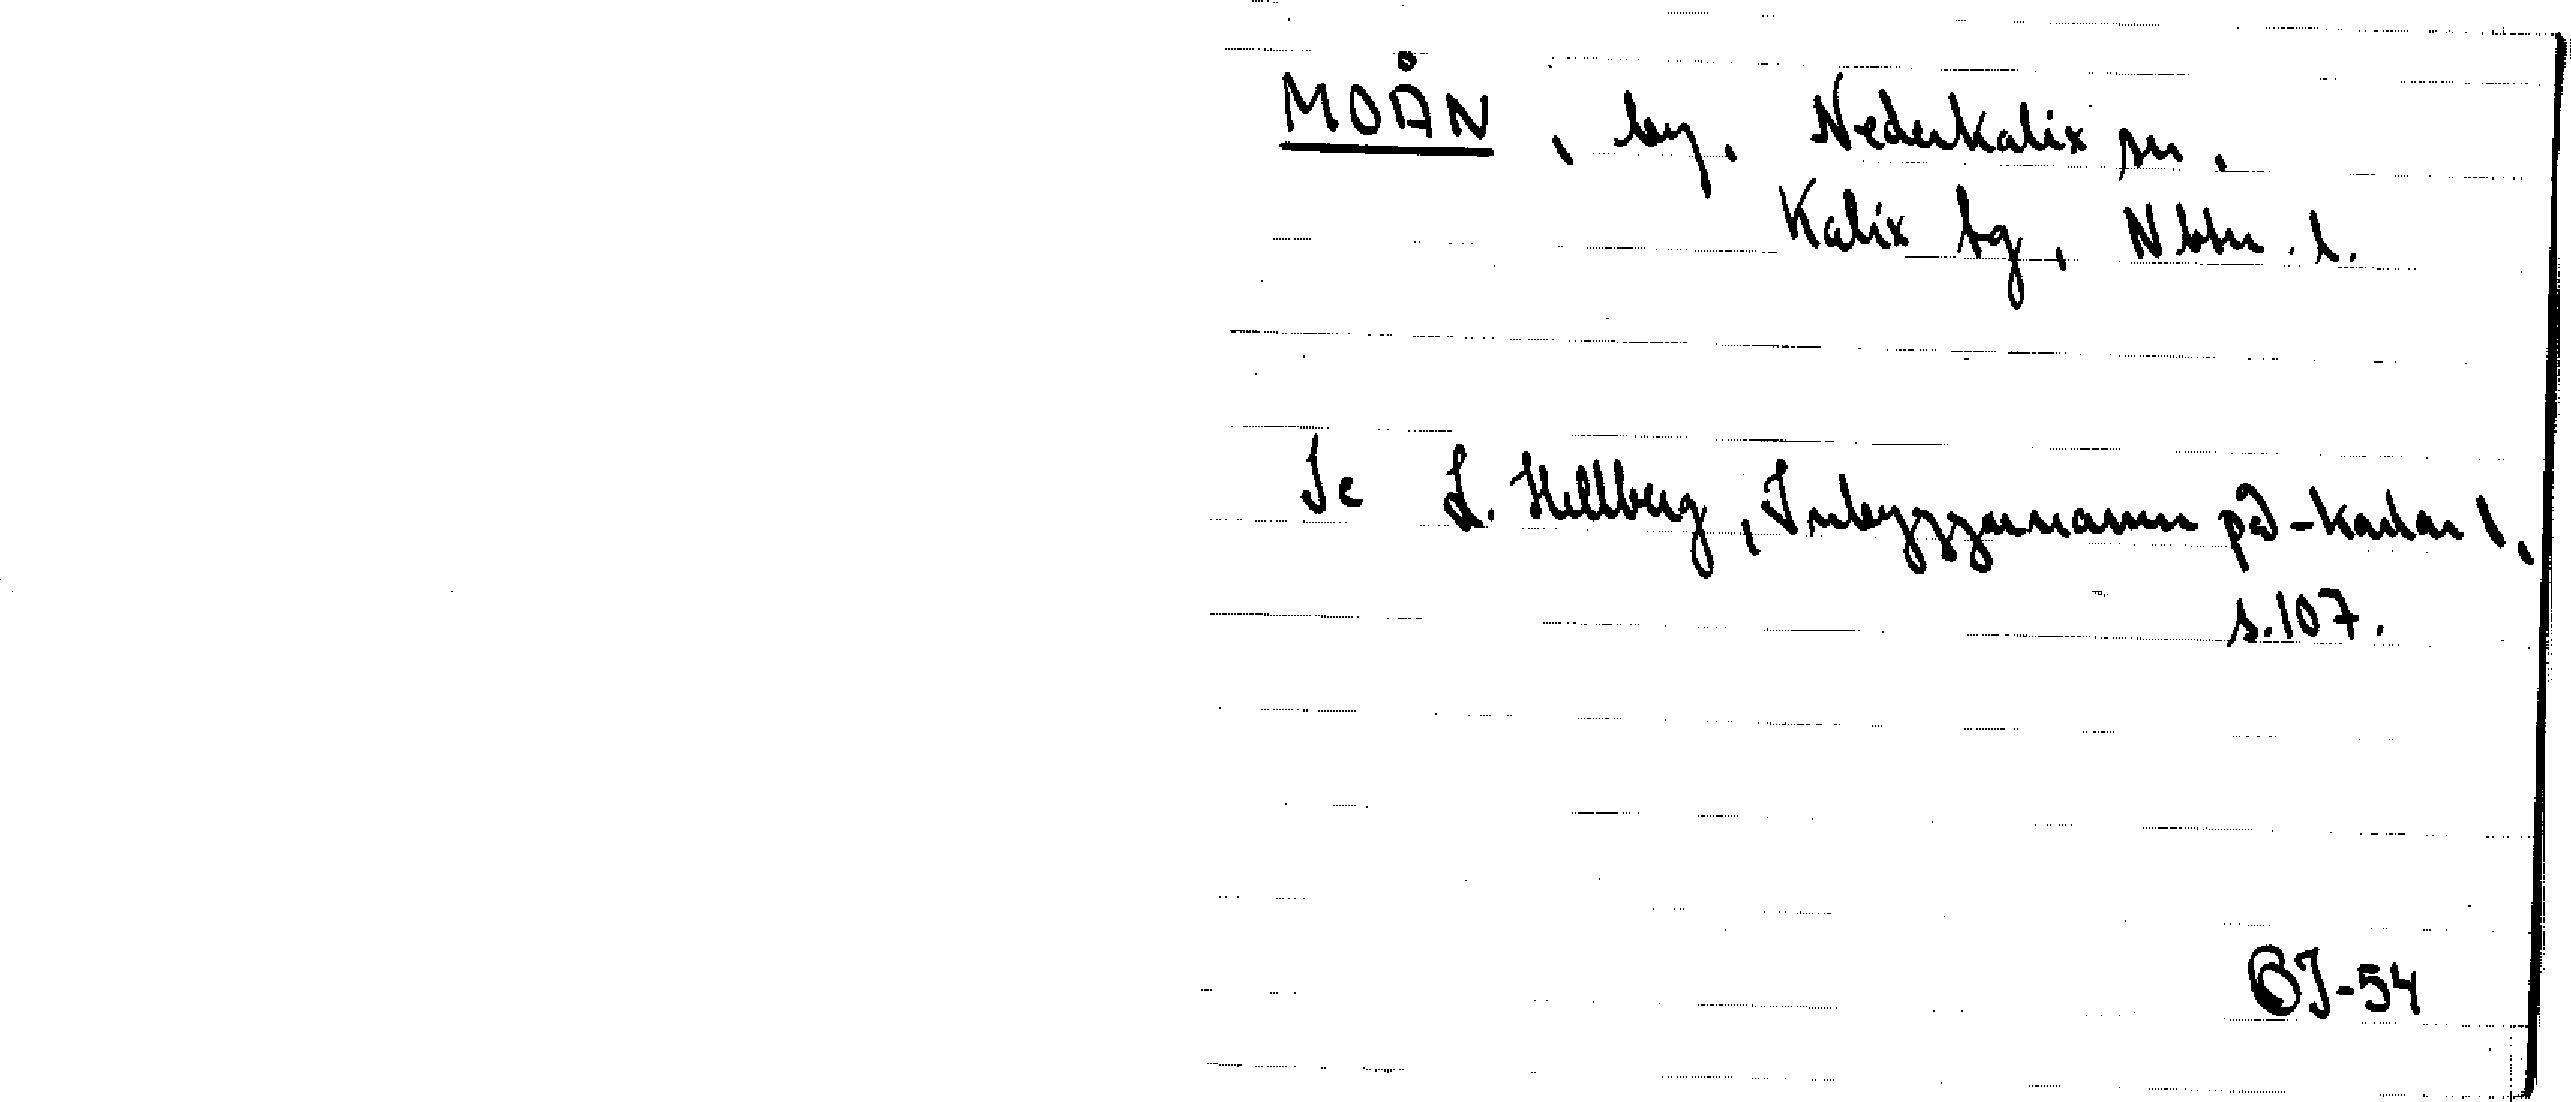 MOÅN, by, Nederkalix sn,
Kalix tg, Nbtn. l.
Se L. Hellberg, Inbyggarnamn på -karlar 1,
s. 107.
BJ-54